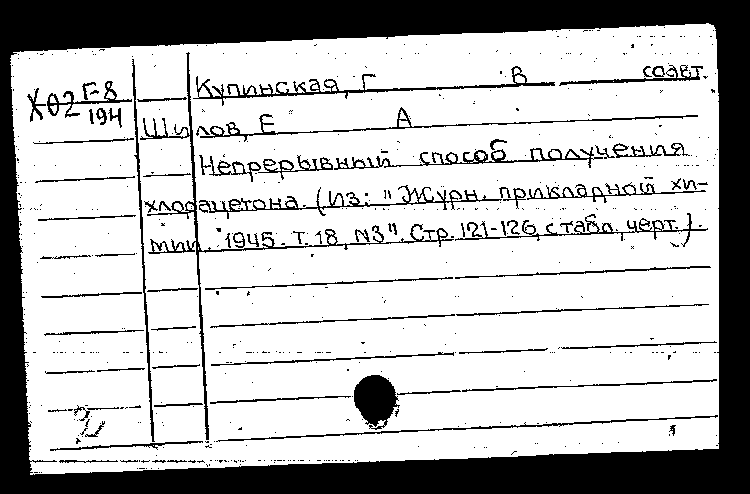 Х02 F-8
194
Купинская, Г В соавт.
Шилов, Е А
Непрерывный способ получения
хлорацетона. (Из: "Журн. прикладной хи-
мии. 1945. Т. 18, N3". Стр. 121-126, с табл., черт.).
2